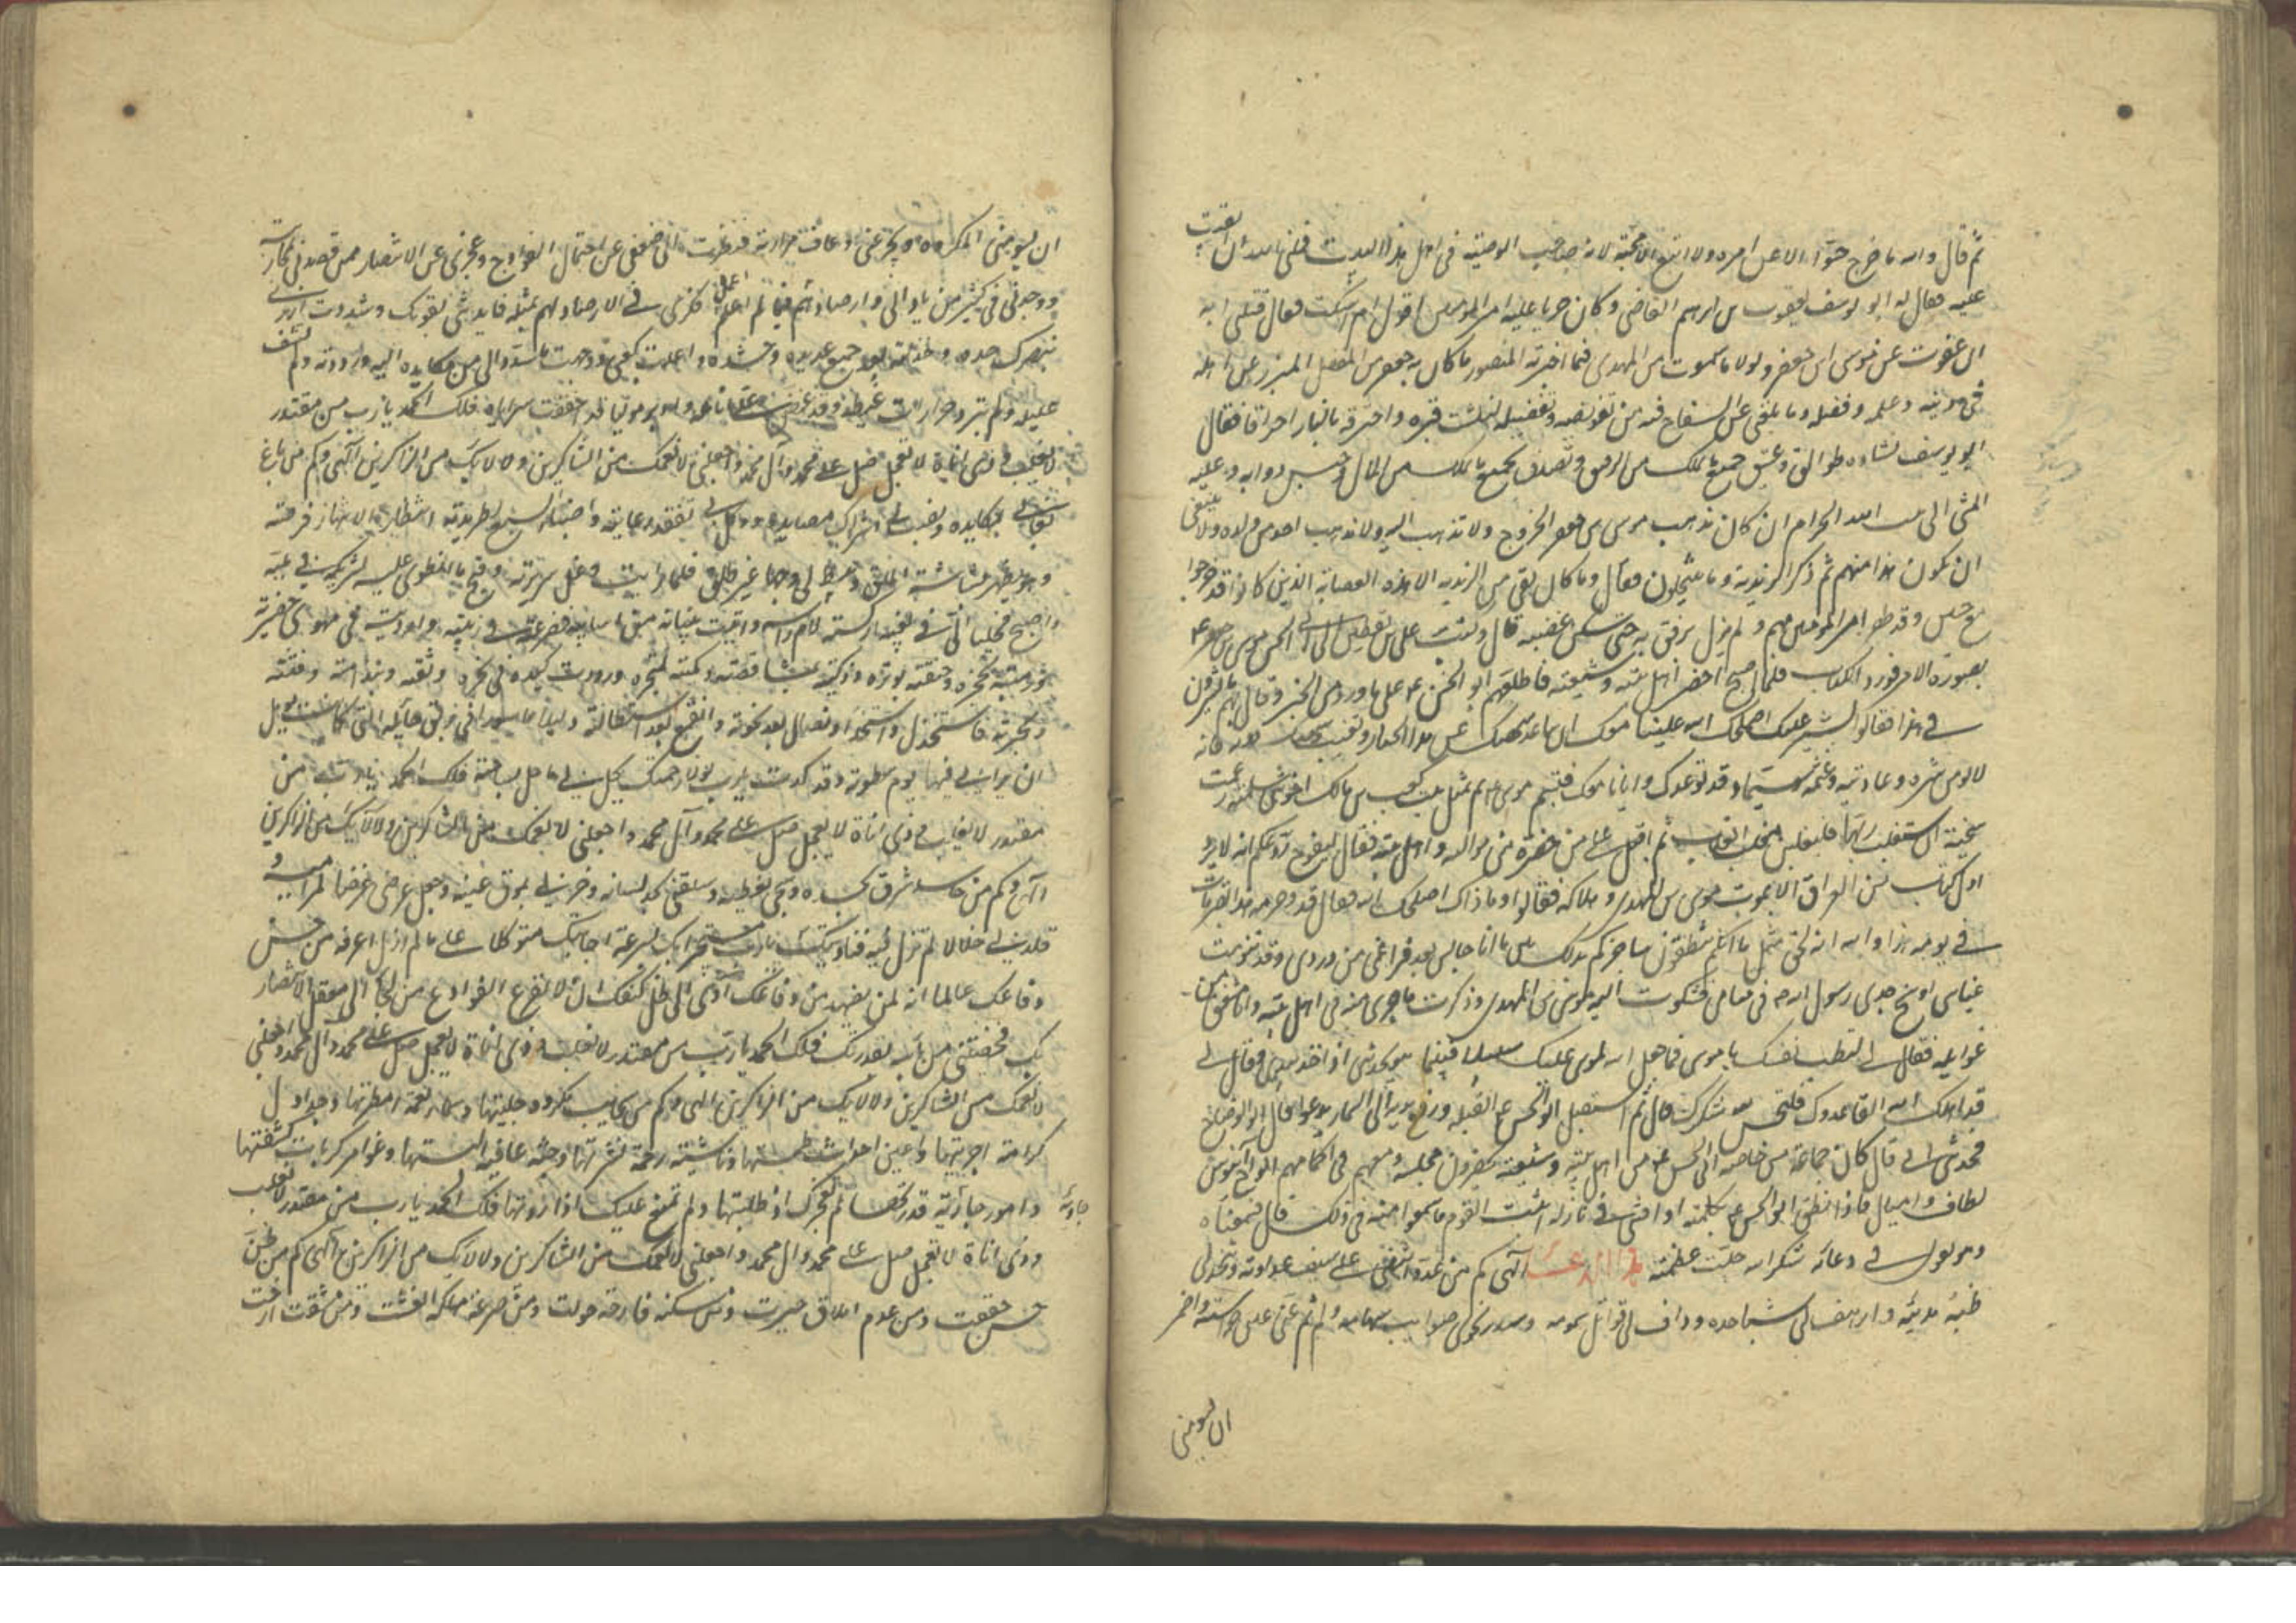 ثم قال والله ما خرج حسين الا عن امره ولا اتبع الا محبته لانه صاحب الوصية في اهل هذا البيت قتلني الله ان ابقيت
عليه فقال له ابو يوسف يعقوب بن ابراهيم القاضي وكان جريا عليه يا امير المؤمنين اقول ام اسكت فقال قتلني الله
ان عفوت عن موسى بن جعفر ولولا ما سمعت من المهدي فيما اخبر به المنصور ما كان به جعفر من الفضل المبرز عن اهله
في دينه وعلمه وفضله وما بلغني عن السفاح فيه من تقريضه وتفضيله لنبشت قبره واحرقته بالنار احراقا فقال
ابو يوسف نساؤه طوالق وعتق جميع ما يملك من الرقيق وتصدق بجميع ما يملك من المال وحبس دوابه وعليه
المشي الى بيت الله الحرام ان كان مذهب موسى بن جعفر الخروج ولا يذهب اليه ولا مذهب احد من ولده ولا ينبغي
ان يكون هذا منهم ثم ذكر الزيدية وما ينتحلون فقال وما كان بقي من الزيدية الا هذه العصابة الذين كانوا قد خرجوا
مع حسين وقد ظفر امير المؤمنين بهم ولم يزل يرفق به حتى سكن غضبه قال وكتب علي بن يقطين الى ابي الحسن موسى بن جعفر ع
بصورة الامر فورد الكتاب فلما اصبح احضر اهل بيته وشيعته فاطلعهم ابو الحسن ع على ما ورد من الخبر وقال لهم ما تشيرون
في هذا فقالوا نشير عليك اصلحك الله وعلينا معك ان تباعد شخصك عن هذا الجبار وتغيب شخصك دونه فانه
لا يؤمن شره وعاديته وغشمه سيما وقد توعدك وايانا معك فتبسم موسى ع ثم تمثل ببيت كعب بن مالك اخي بني سلمة زعمت
سخينة ان ستغلب ربها فليغلبن مغلب الغلاب ثم اقبل على من حضره من مواليه واهل بيته فقال ليفرخ روعكم انه لا يرد
اول كتاب من العراق الا بموت موسى بن المهدي وهلاكه فقالوا وما ذاك اصلحك الله فقال قد وحرمة هذا القبر مات
في يومه هذا والله انه لحق مثل ما انكم تنطقون ساخبركم بذلك بينما انا جالس بعد فراغي من وردي وقد تنومت
عيناي اذ سنح جدي رسول الله ص في منامي فشكوت اليه موسى بن المهدي وذكرت ما جرى منه في اهل بيته وانا مشفق من
غوائله فقال لي لتطب نفسك يا موسى فما جعل الله لموسى عليك سبيلا فبينما هو يحدثني اذ اخذ بيدي وقال لي
قد اهلك الله انفا عدوك فليحسن لله شكرك قال ثم استقبل ابو الحسن ع القبلة ورفع يديه الى السماء يدعو قال ابو الوضاح
فحدثني ابي قال كان جماعة من خاصة ابي الحسن ع من اهل بيته وشيعته يحضرون مجلسه ومعهم في اكمامهم الواح آبنوس
لطاف واميال فاذا نطق ابو الحسن ع بكلمة او افتى في نازلة اثبت القوم ما سمعوا منه في ذلك قال فسمعناه
وهو يقول في دعائه شكرا لله جلت عظمته الدعاء الهي كم من عدو انتضى علي سيف عداوته وشحذ لي
ظبة مديته وارهف لي شبا حده وداف لي قواتل سمومه وسدد نحوي صوايب سهامه ولم تنم عني عين حراسته واضمر
ان يسومني
ان يسومني المكروه ويجرعني ذعاف مرارته فنظرت الى ضعفي عن احتمال الفوادح وعجزي عن الانتصار ممن قصدني بمحاربته
ووحدتي في كثير من ناواني وارصادهم لي فيما لم اعمل فكري في الارصاد لهم بمثله فايدتني بقوتك وشددت ازري
بنصرك وخذلته بعد جمع عديده وحشده واعليت كعبي ووجهت ما سدد الي من مكايده اليه ورددته ولم يشف
غليله ولم تبرد حرارات غيظه وقد عض علي انامله وادبر موليا قد اخفقت سراياه فلك الحمد يا رب من مقتدر
لا يغلب وذي اناة لا يعجل صل على محمد وآل محمد واجعلني لانعمك من الشاكرين ولآلائك من الذاكرين الهي وكم من باغ
بغاني بمكايده ونصب لي اشراك مصايده ووكل بي تفقد رعايته واضبا الي اضباء السبع لطريدته انتظارا لانتهاز فرصته
وهو يظهر بشاشة الملق ويبسط لي وجها غير طلق فلما رايت دغل سريرته وقبح ما انطوى عليه لشريكه في ملته
واصبح مجلبا الي في بغيه اركسته لام راسه واتيت بنيانه من اساسه فصرعته في زبيته وارديته في مهوى حفرته
ورميته بحجره وخنقته بوتره وذكيته بمشاقصه وكبته لمنخره ورددت كيده في نحره ووثقته بندامته وفتنته
بحسرته فاستخذل واستخذا وتضاءل بعد نخوته وانقمع بعد استطالته ذليلا ماسورا في ربق حبائله التي كان يؤمل
ان يراني فيها يوم سطوته وقد كدت يا رب لولا رحمتك يحل بي ما حل بساحته فلك الحمد يا رب من
مقتدر لا يغلب وذي اناة لا يعجل صل على محمد وآل محمد واجعلني لانعمك من الشاكرين ولآلائك من الذاكرين
الهي وكم من حاسد شرق بحسده وشجي بغيظه وسلقني بحد لسانه ووخزني بموق عينه وجعل عرضي غرضا لمراميه و
قلدني خلالا لم تزل فيه فناديتك يا رب مستجيرا بك بسرعة اجابتك متوكلا على ما لم ازل اعرفه من حسن
دفاعك عالما انه لن يضطهد من اوى الى ظل كنفك وان لا تقرع الفوادح من لجا الى معقل الانتصار
بك فحصنتني من باسه بقدرتك فلك الحمد يا رب من مقتدر لا يغلب وذي اناة لا يعجل صل على محمد وآل محمد واجعلني
لانعمك من الشاكرين ولآلائك من الذاكرين الهي وكم من سحايب مكروه جليتها وسماء نعمة امطرتها وجداول
كرامة اجريتها واعين احداث طمستها وناشية رحمة نشرتها وجنة عافية البستها وغوامر كربات كشفتها
وامور جارية قدرتها لم تعجزك اذ طلبتها ولم تمتنع عليك اذا اردتها فلك الحمد يا رب من مقتدر لا يغلب
جارية
وذي اناة لا يعجل صل على محمد وآل محمد واجعلني لانعمك من الشاكرين ولآلائك من الذاكرين الهي وكم من ظن
حسن حققت ومن عدم املاق جبرت ومن مسكنة فادحة حولت ومن صرعة مهلكة انعشت ومن مشقة ارحت